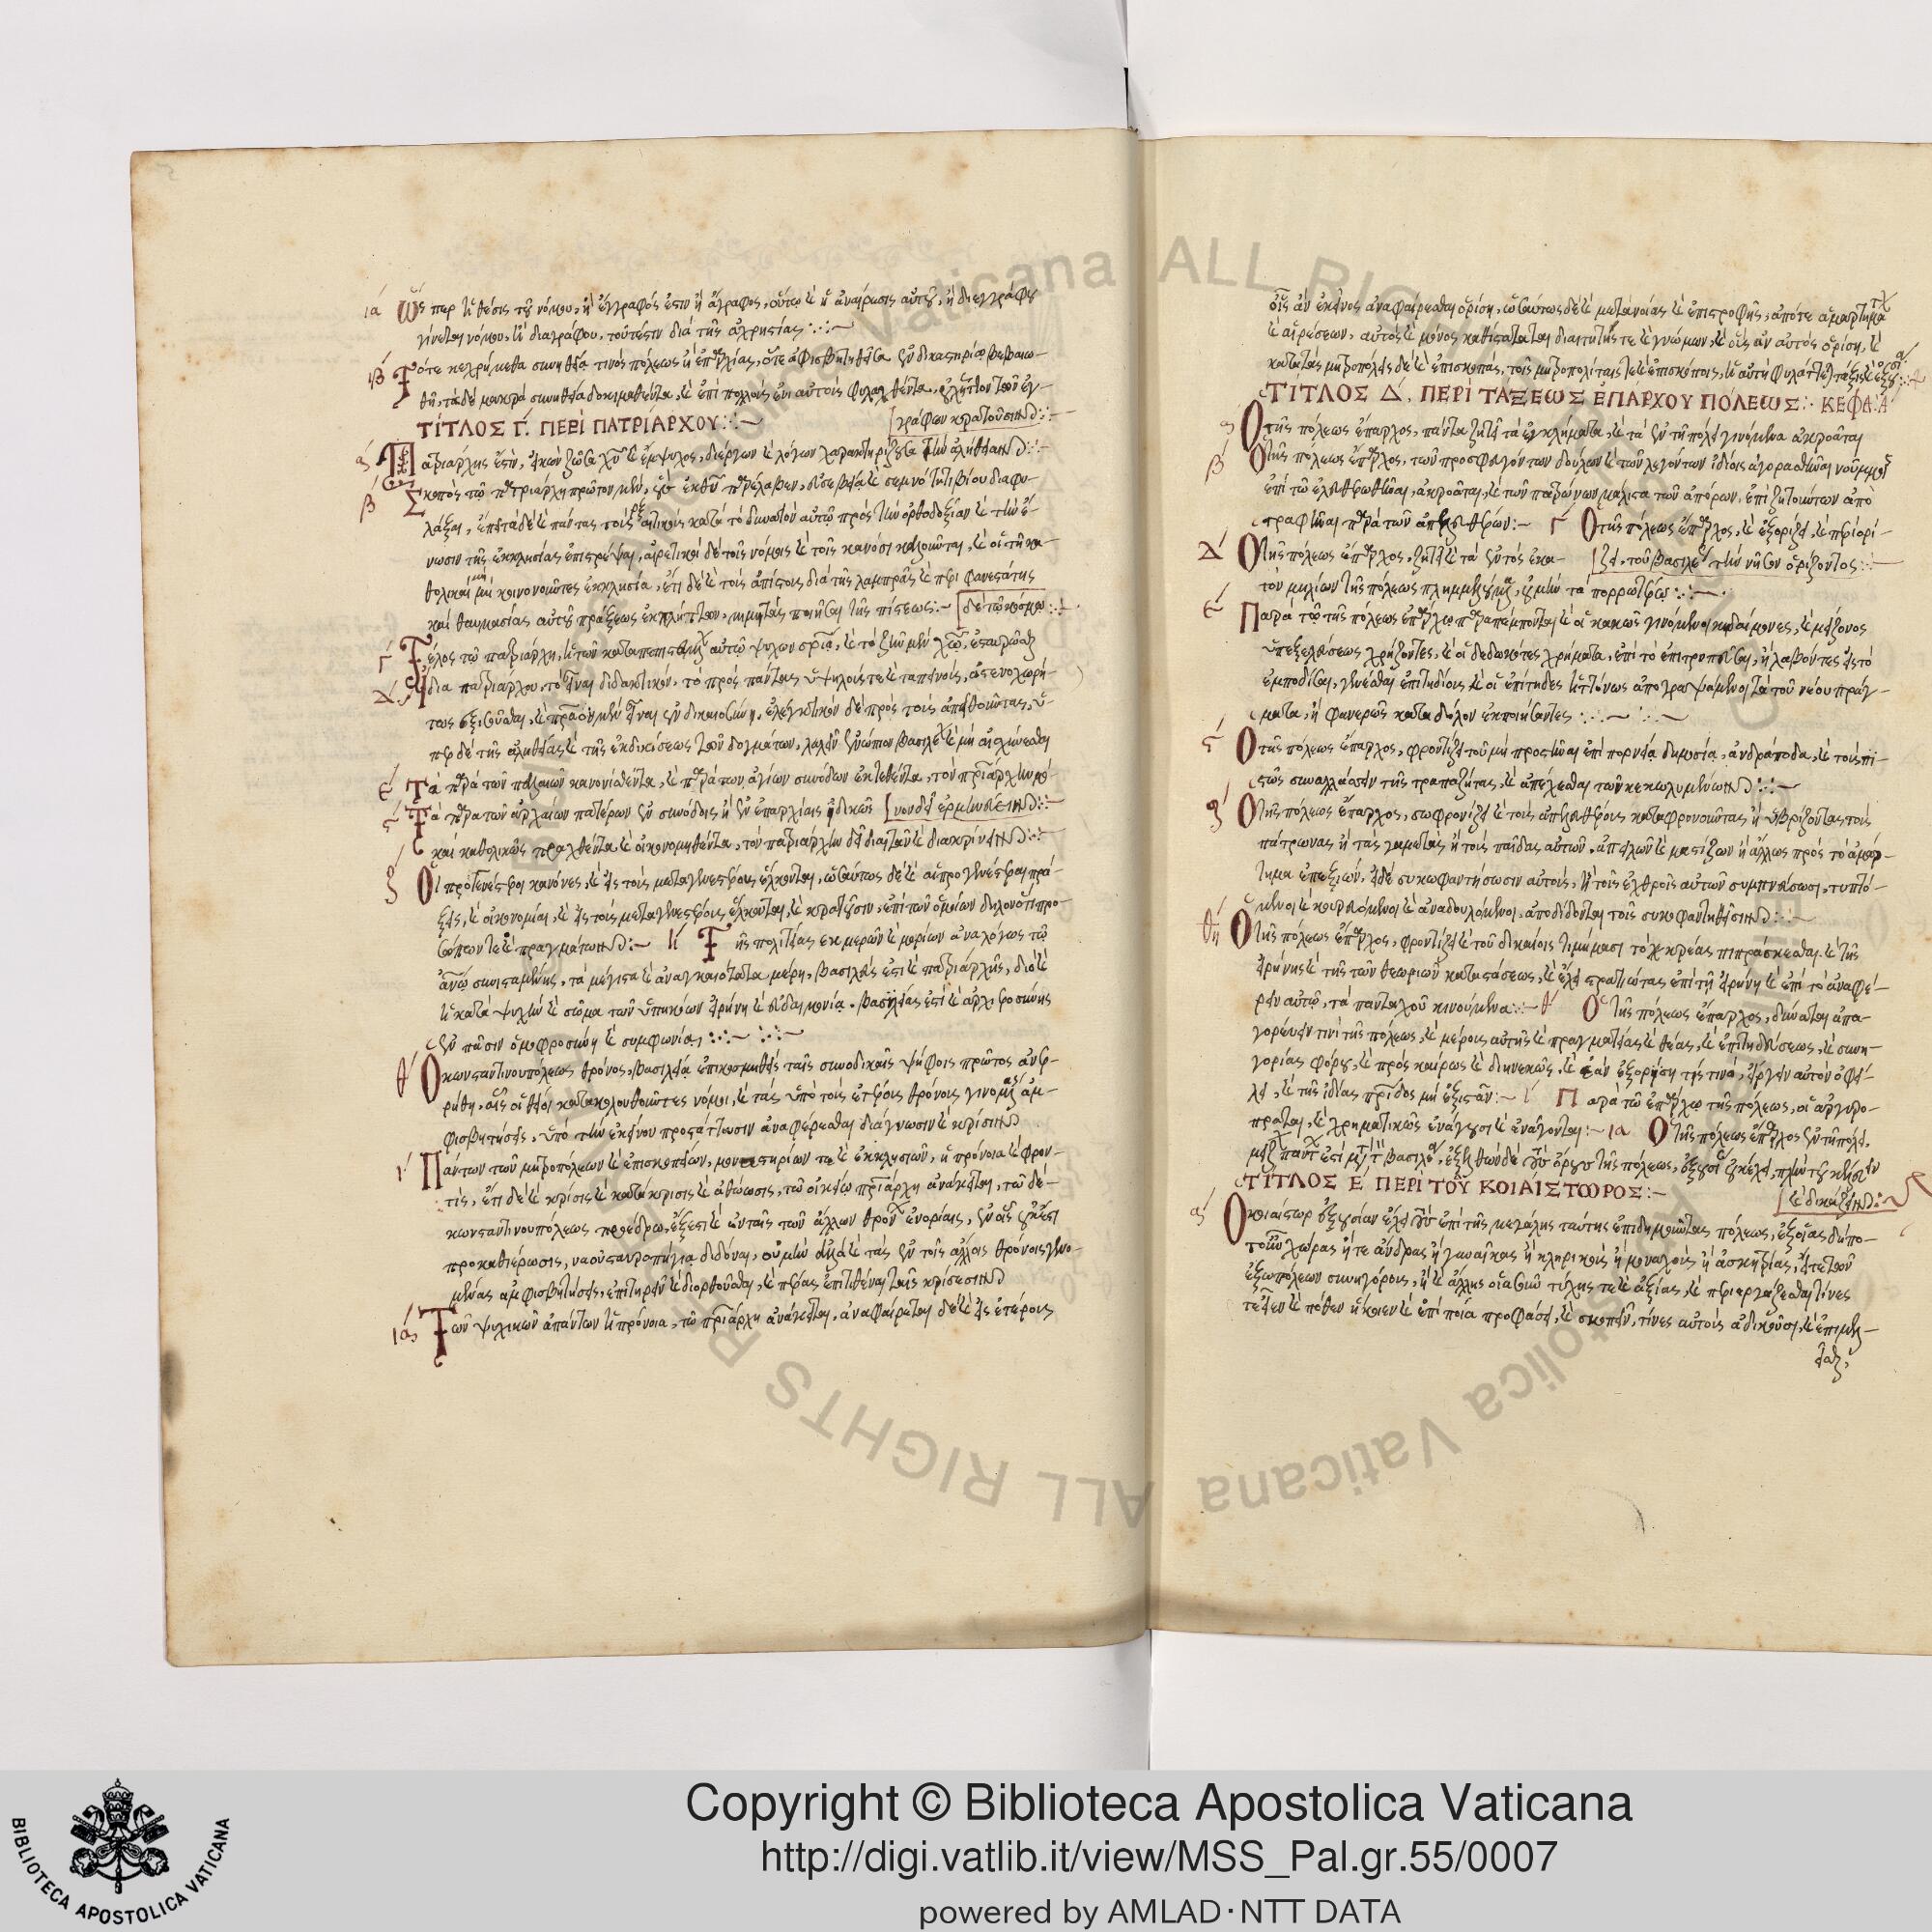 ιά ὥσπερ ἡ θέσις τοῦ νόμου, ἢ ἔγγραφός ἐστιν ἢ ἄγραφος, οὕτω καὶ ἡ ἀναίρεσις αὐτοῦ, ἢ δι' ἐγγράφου
γίνεται νόμου, ἢ δι' ἀγράφου, τουτέστιν διὰ τῆς ἀχρησίας
ιβ Τότε κεχρήμεθα συνηθείᾳ τινὸς πόλεως ἢ ἐπαρχίας, ὅτε ἀμφισβητηθεῖσα ἐν δικαστηρίῳ βεβαιω-
θῇ, τὰ δὲ μακρᾷ συνηθείᾳ δοκιμασθέντα, καὶ ἐπὶ πολλοῖς
ΤΊΤΛΟΣ Γ. ΠΕΡῚ ΠΑΤΡΙΆΡΧΟΥ
γράφων κρατοῦσιν
ά Πατριάρχης ἐστὶν, εἰκὼν ζῶσα χυ καὶ ἔμψυχος, δι' ἔργων καὶ λόγων χαρακτηρίζουσα τὴν ἀλήθειαν
β Σκοπὸς τῷ πατριάρχῃ πρῶτον μὲν, οὓς ἐκ θυ παρέλαβεν, εὐσεβείᾳ καὶ σεμνότητι βίου διαφυ-
λάξαι, ἔπειτα δὲ καὶ πάντας τοὺς αἱρετικοὺς κατὰ τὸ δυνατὸν αὐτῷ πρὸς τὴν ὀρθοδοξίαν καὶ τὴν ἕ-
νωσιν τῆς ἐκκλησίας ἐπιστρέψαι, αἱρετικοὶ δὲ τοῖς νόμοις καὶ τοῖς κανόσι καλοῦνται, καὶ οἱ τῇ κα-
θολικῇ μὴ κοινωνοῦντες ἐκκλησίᾳ, ἔτι δὲ καὶ τοὺς ἀπίστους διὰ τῆς λαμπρᾶς καὶ περιφανεστάτης
καὶ θαυμασίας αὐτοῦ πράξεως ἐκπλήττων, μιμητὰς ποιῆσαι τῆς πίστεως
δὲ τῷ κόσμῳ
Γ Τέλος τῷ πατριάρχῃ, ἡ τῶν καταπιστευθεισῶν αὐτῷ ψυχῶν σρια, καὶ τὸ ζῆν μὲν χω, ἐσταυρῶσθαι
Δ Ἴδια πατριάρχου, τὸ εἶναι διδακτικὸν, τὸ πρὸς πάντας ὑψηλούς τε καὶ ταπεινοὺς, ἀστενοχωρή-
τως ἐξισοῦσθαι, καὶ πρᾶον μὲν εἶναι ἐν δικαιοσύνῃ, ἐλεγκτικὸν δὲ πρὸς τοὺς ἀπειθοῦντας, ὑ-
πὲρ δὲ τῆς ἀληθείας καὶ τῆς ἐκδικήσεως τῶν δογμάτων, λαλεῖν ἐνώπιον βασιλέων καὶ μὴ αἰσχύνεσθαι
Ε Τὰ παρὰ τῶν παλαιῶν κανονισθέντα, καὶ παρὰ τῶν ἁγίων συνόδων ἐκτεθέντα, τὸν πριάρχην μό-
νον δεῖ ἑρμηνεύειν
ς Τὰ παρὰ τῶν ἀρχαίων πατέρων ἐν συνόδοις ἢ ἐν ἐπαρχίαις εἰδικῶς
καὶ καθολικῶς πραχθέντα καὶ οἰκονομηθέντα, τὸν πατριάρχην δεῖ διαιτᾶν καὶ διακρίνειν
ζ Οἱ προγενέστεροι κανόνες, καὶ εἰς τοὺς μεταγενεστέρους ἕλκονται, ὡσαύτως δὲ καὶ αἱ προγενέστεραι πρά-
ξεις, καὶ οἰκονομίαι, καὶ εἰς τοὺς μεταγενεστέρους ἕλκονται, καὶ κρατοῦσιν, ἐπὶ τῶν ὁμοίων δηλονότι προ-
σώπων τε καὶ πραγμάτων ή Τῆς πολιτείας ἐκ μερῶν καὶ μορίων ἀναλόγως τῷ
ανω συνισταμένης, τὰ μέγιστα καὶ ἀναγκαιότατα μέρη, βασιλεύς ἐστι καὶ πατριάρχης, διὸ καὶ
ἡ κατὰ ψυχὴν καὶ σῶμα τῶν ὑπηκόων εἰρήνη καὶ εὐδαιμονία, βασιλείας ἐστὶ καὶ ἀρχιερωσύνης
ἐν πᾶσιν ὁμοφροσύνη καὶ συμφωνία
θ Ὁ κωνσταντινουπόλεως θρόνος, βασιλείᾳ ἐπικοσμηθεὶς ταῖς συνοδικαῖς ψήφοις πρῶτος ἀνερ-
ρήθη, αἷς οἱ θεῖοι κατακολουθοῦντες νόμοι, καὶ τὰς ὑπὸ τοὺς ἑτέρους θρόνους γινομένας ἀμ-
φισβητήσεις, ὑπὸ τὴν ἐκείνου προστάττουσιν ἀναφέρεσθαι διάγνωσιν καὶ κρίσιν
ι Πάντων τῶν μητροπόλεων καὶ ἐπισκοπείων, μοναστηρίων τε καὶ ἐκκλησιῶν, ἡ πρόνοια καὶ φρον-
τὶς, ἔτι δὲ καὶ κρίσις καὶ κατάκρισις καὶ ἀθώωσις, τῷ οἰκείῳ πριάρχῃ ἀνάκειται, τῷ δὲ
κωνσταντινουπόλεως προέδρῳ, ἔξεστι καὶ ἐν ταῖς τῶν ἄλλων θρόνων ἐνορίαις, ἐν οἷς οὐκ ἔστι
προκαθιέρωσις, ναοῦ σταυροπήγια διδόναι, οὐ μὴν ἀλλὰ καὶ τὰς ἐν τοῖς ἄλλοις θρόνοις γινο-
μένας ἀμφισβητήσεις, ἐπιτηρεῖν καὶ διορθοῦσθαι, καὶ πέρας ἐπιτιθέναι ταῖς κρίσεσιν
ιά Τῶν ψυχικῶν ἁπάντων ἡ πρόνοια, τῷ πριάρχῃ ἀνάκειται, ἀναφαίρεται δὲ καὶ εἰς ἑτέρους
οἷς ἂν ἐκεῖνος ἀναφαίρεσθαι ὁρίσῃ, ὡσαύτως δὲ καὶ μετανοίας καὶ ἐπιστροφῆς, ἀπό τε ἁμαρτημάτων
καὶ αἱρέσεων, αὐτὸς καὶ μόνος καθίσταται διαιτητής τε καὶ γνώμων, καὶ οὓς ἂν αὐτὸς ὁρίσῃ, καὶ
κατὰ τὰς μητροπόλεις δὲ καὶ ἐπισκοπὰς, τοῖς μητροπολίταις τε καὶ ἐπισκόποις, ἡ αὐτὴ φυλάττεται τάξις καὶ ἐξουσία
ΤΊΤΛΟΣ Δ, ΠΕΡῚ ΤΆΞΕΩΣ ἘΠΆΡΧΟΥ ΠΌΛΕΩΣ ΚΕΦΑ. Α
α Ὁ τῆς πόλεως ἔπαρχος, πάντα ζητεῖ τὰ ἐγκλήματα, καὶ τὰ ἐν τῇ πόλει γινόμενα ἀκροᾶται
β Ὁ τῆς πόλεως ἔπαρχος, τῶν προσφυγόντων δούλων καὶ τῶν λεγόντων ἰδίοις ἀγορασθῆναι νούμμοις
ἐπὶ τῷ ἐλευθερωθῆναι, ἀκροᾶται, καὶ τῶν πατρώνων μάλιστα τῶν ἀπόρων, ἐπιζητούντων ἀπο
τραφῆναι παρὰ τῶν ἀπελευθέρων Γ Ὁ τῆς πόλεως ἔπαρχος, καὶ ἐξορίζει, καὶ περιορί-
ζει, τοῦ βασιλέως τὴν νῆσον ὁρίζοντος
Δ Ὁ τῆς πόλεως ἔπαρχος, ζητεῖ καὶ τὰ ἐντὸς ἑκα-
τὸν μιλίων τῆς πόλεως πλημμελούμενα, οὐ μὴν τὰ πορρωτέρω
Ε Παρὰ τῷ τῆς πόλεως ἐπάρχῳ παραπέμπονται καὶ οἱ κακῶς γινόμενοι κηδεμόνες, καὶ μείζονος
ὑπεξελεύσεως χρήζοντες, καὶ οἱ δεδωκότες χρήματα, ἐπὶ τὸ ἐπιτροπεῦσαι, ἢ λαβόντες εἰς τὸ
ἐμποδίσαι, γενέσθαι ἐπιτηδείους καὶ οἱ ἐπίτηδες
ματα, ἢ φανερῶς κατὰ δόλον ἐκποιήσαντες
ς Ὁ τῆς πόλεως ἔπαρχος, φροντίζει τοῦ μὴ προστῆναι ἐπὶ πορνείᾳ δημοσίᾳ, ἀνδράποδα, καὶ τοὺς πι-
στῶς συναλλάσσειν τῆς τραπεζίτας, καὶ ἀπέχεσθαι τῶν κεκωλυμένων
ζ Ὁ τῆς πόλεως ἔπαρχος, σωφρονίζει καὶ τοὺς ἀπελευθέρους καταφρονοῦντας ἢ ὑβρίζοντας τοὺς
πάτρωνας ἢ τὰς γαμετὰς ἢ τοὺς παῖδας αὐτῶν, ἀπειλῶν καὶ μαστίζων ἢ ἄλλως πρὸς τὸ ἁμάρ-
τημα ἐπεξιὼν, εἰ δὲ συκοφαντήσωσιν αὐτοὺς, ἢ τοῖς ἐχθροῖς αὐτῶν συμπνεύσωσι, τυπτό-
μενοι καὶ κουρευόμενοι καὶ ἀναδουλούμενοι, ἀποδίδονται τοῖς συκοφαντηθεῖσιν
θή Ὁ τῆς πόλεως ἔπαρχος, φροντίζει καὶ τοῦ δικαίοις τιμήμασι τὸ κρέας πιπράσκεσθαι καὶ τῆς
εἰρήνης καὶ τῆς τῶν θεωριῶν καταστάσεως, καὶ ἔχει στρατιώτας ἐπὶ τῇ εἰρήνῃ καὶ ἐπὶ τὸ ἀναφέ-
ρειν αὐτῷ, τὰ πανταχοῦ κινούμενα θ Ὁ τῆς πόλεως ἔπαρχος, δύναται ἀπα-
γορεύειν τινὶ τῆς πόλεως, καὶ μέρους αὐτῆς καὶ πραγματείας καὶ θέας, καὶ ἐπιτηδεύσεως, καὶ συνη-
γορίας φόρου, καὶ πρὸς καιρὸς καὶ διηνεκῶς, καὶ ἐὰν ἐξορίσῃ τίς τινα, εἴργειν αὐτὸν ὀφεί-
λει, καὶ τῆς ἰδίας πρίδος μὴ ἐξιστᾶν ί Παρὰ τῷ ἐπάρχῳ τῆς πόλεως, οἱ ἀργυρο-
πράται, καὶ χρηματικῶς ἐνάγουσι καὶ ἐνάγονται ια Ὁ τῆς πόλεως ἔπαρχος ἐν τῇ πόλει,
μείζων πάντων ἐστὶ μετὰ τὸν βασιλέα, ἐξελθὼν δὲ τοὺς ὅρους τῆς πόλεως, ἐξουσίαν οὐκ ἔχει, πλὴν τοῦ
καὶ δικάζειν
ΤΊΤΛΟΣ Ε ΠΕΡῚ ΤΟΥ͂ ΚΟΙΑΊΣΤΩΡΟΣ
ά Ὁ κοιαίστωρ ἐξουσίαν ἔχει τοὺς ἐπὶ τῆς μεγάλης ταύτης ἐπιδημοῦντας πόλεως, ἐξ οἵας δήπο-
τε οὖν χώρας ἤτε ἄνδρας ἢ γυναῖκας ἢ κληρικοὺς ἢ μοναχοὺς ἢ ἀσκητρίας, εἴτε τῶν
ἔξω πόλεων συνηγόρους, ἢ καὶ ἄλλης οἱασοῦν τύχης τε καὶ ἀξίας, καὶ περιεργάζεσθαι τίνες
τέ εἶεν καὶ πόθεν ἥκοιεν καὶ ἐπὶ ποίᾳ προφάσει, καὶ σκοπεῖν, τίνες αὐτοὺς ἀδικοῦσι, καὶ ἐπιμελ-
εῖσθαι
ALL RIGHTS
Vaticana
Apostolica Vaticana
BIBLIOTECA APOSTOLICA VATICANA
Copyright © Biblioteca Apostolica Vaticana
http://digi.vatlib.it/view/MSS_Pal.gr.55/0007
powered by AMLAD·NTT DATA